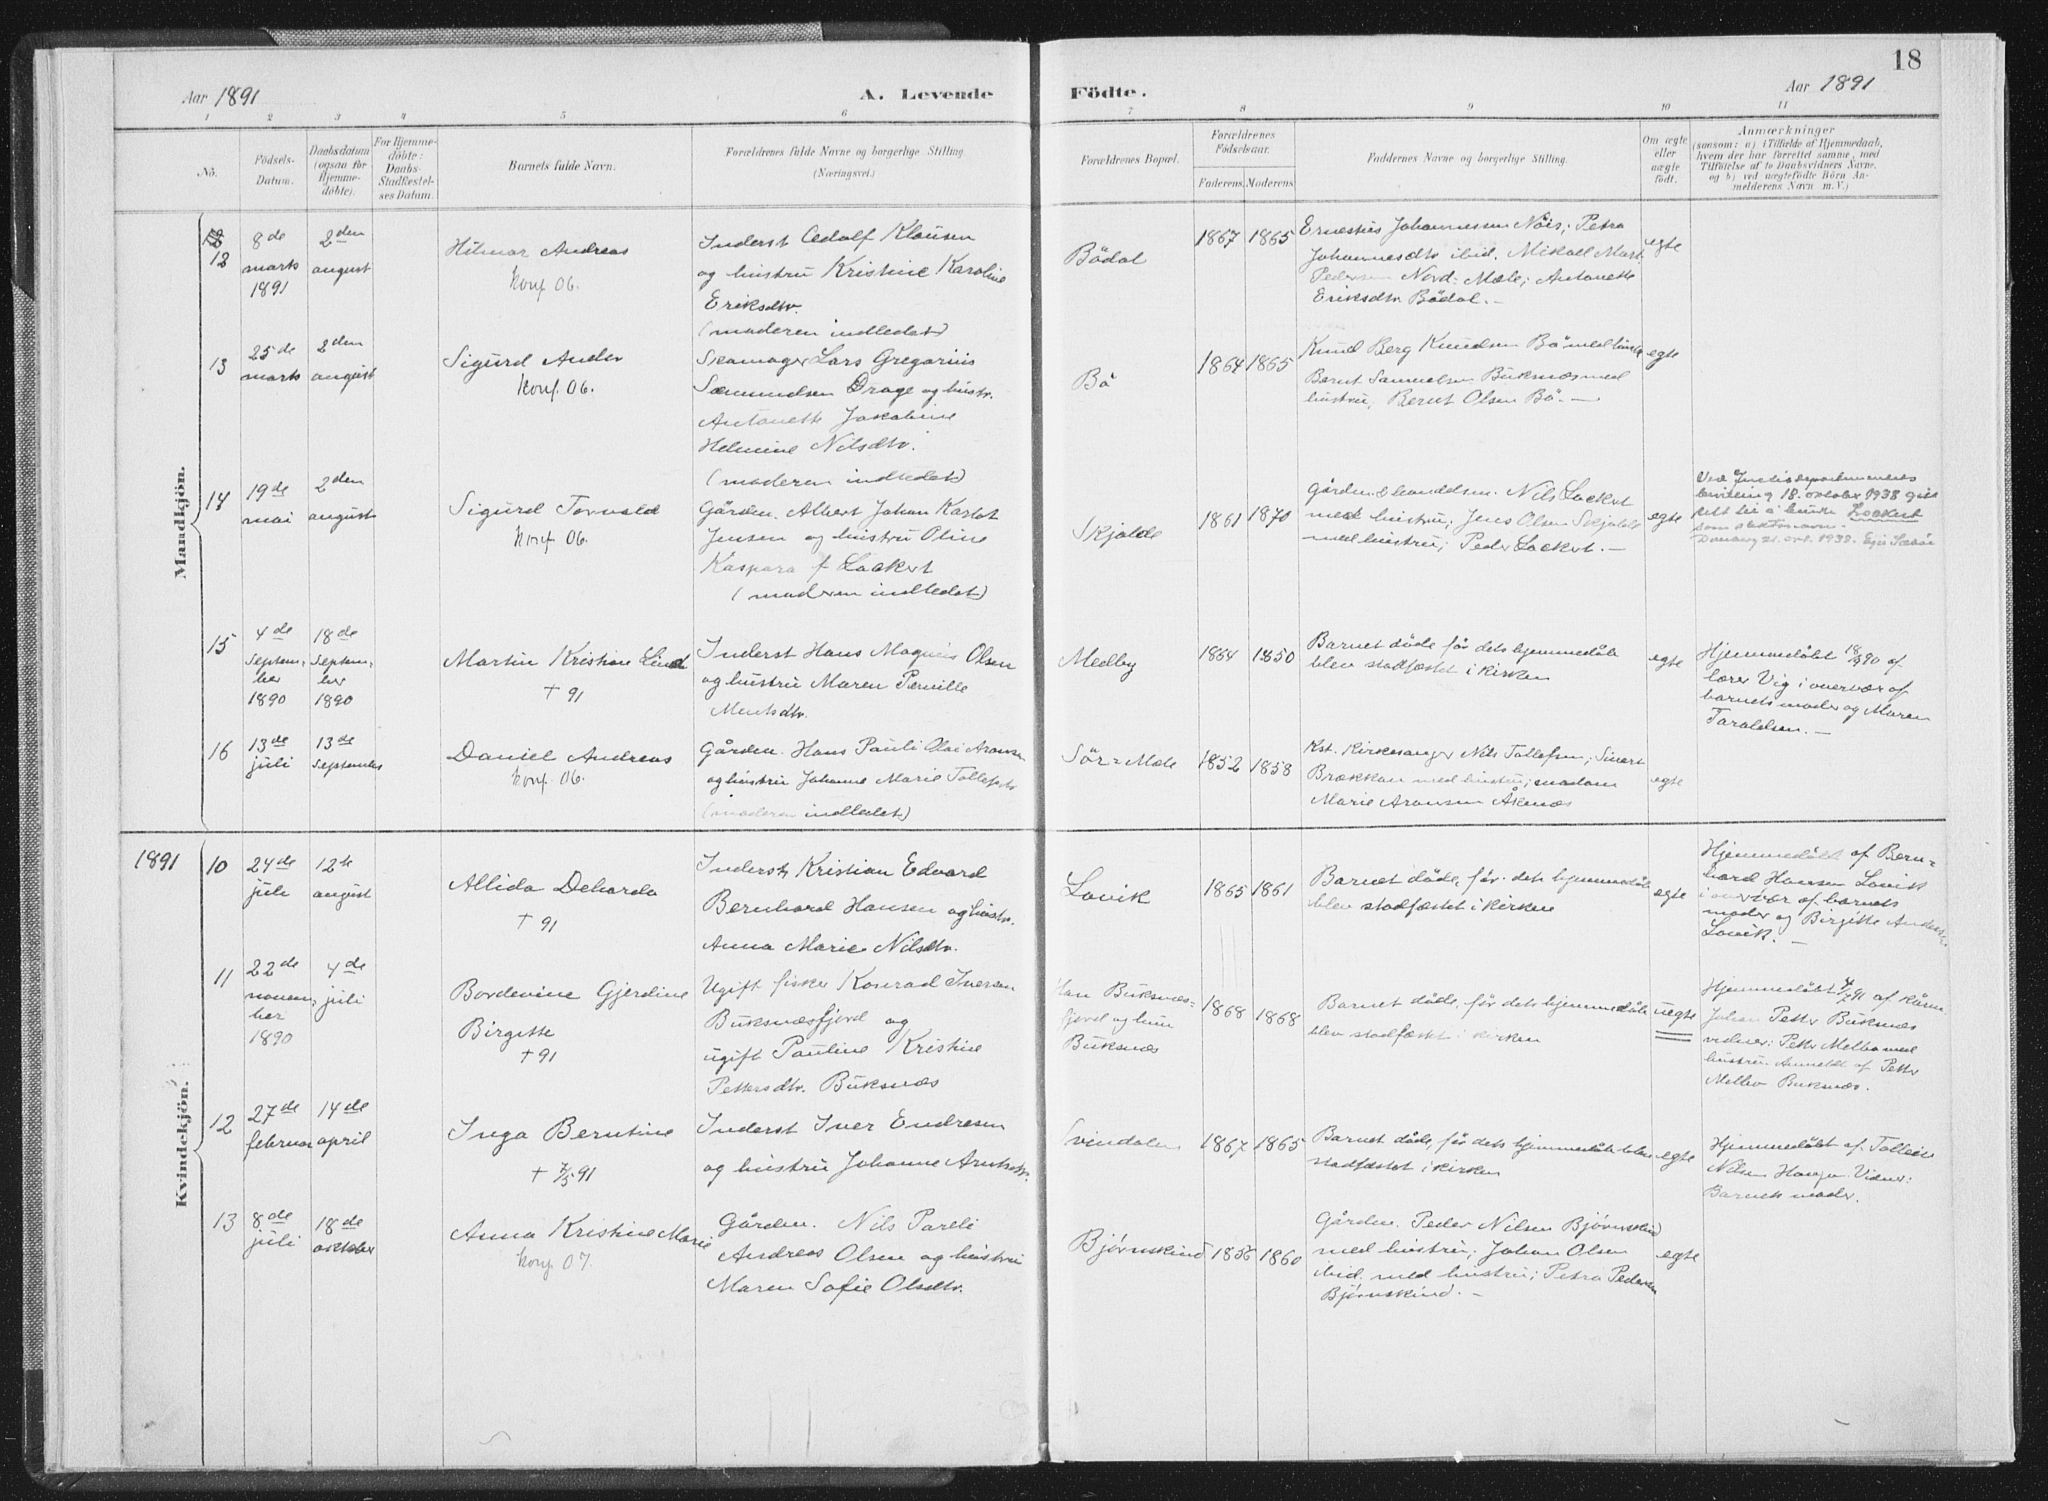 18
Aar 1891
A. Levende
Födte.
Aar 1891
1 2 3 4 5 6 7 8 9 10 11
Nö.
Födsels-
Datum.
Daabsdatum
(ogsaa for
Hjemme-
döbte).
For Hjemme-
döbte:
Daabs-
Stadfæstel-
ses Datum.
Barnets fulde Navn.
Forældrenes fulde Navne og borgerlige Stilling.
(Næringsvei.)
Forældrenes Bopæl.
Forældrenes
Födselsaar.
Faderens. Moderens.
Faddernes Navne og borgerlige Stilling.
Om ægte
eller
uægte
födt.
Anmærkninger
(saasom: a) i Tilfælde af Hjemmedaab,
hvem der har forrettet samme, med
Tilföielse af to Daabsvidners Navne,
og b) ved uægtefödte Börn An-
melderens Navn m. V.)
Mandkjön.
12
8de
marts
1891
2den
august
Hilmar Andreas
konf. 06.
Inderst Adolf Klausen
og hustru Kristine Karoline
Eriksdtr.
(moderen indledet)
Bödal
1867 1865
Ernestus Johannessen Nöis; Petra
Johannesdtr ibid. Mikael Mart.
Pedersen Nord-Mæle; Antonette
Eriksdtr Bödal. –
egte
13
25de
marts
2den
august
Sigurd Ander
konf. 06.
Skomager Lars Gregorius
Sæmundsen Drage og hustr.
Antonette Jakobine
Helmine Nilsdtr.
(moderen indledet)
Bö
1864 1865
Knud Berg Knudsen Bö med hustr
Bernt Samuelsen Buksnæs med
hustru; Bernt Olsen Bö. –
egte
14
19de
mai
2den
august
Sigurd Torvald
konf. 06.
Gården. Albert Johan Karlot
Jensen og hustru Oline
Kaspara f. Lockert
(moderen indledet)
Skjolde
1861 1870
Gården. & handelsm. Nils Lockert
med hustru; Jens Olsen Skjolde
med hustru; Peder Lockert. –
egte
Ved Justisdepartementets
bevilling 18. oktober 1938 gitt
rett til å bruke Lockert
som slektsnavn.
15
4de
septem-
ber
1890
18de
septem-
ber
1890
Martin Kristian Lind
+ 91
Inderst Hans Magnus Olsen
og hustru Maren Pernille
Mentsdtr.
Medby
1864 1850
Barnet döde för dets hjemmedåb
blev stadfæstet i kirken
egte
Hjemmedöbt 18/9 90 af
lærer Vig i overvær af
barnets moder og Maren
Taraldsen. –
16
13de
juli
13de
september
Daniel Andreas
konf. 06.
Gården. Hans Pauli Olai Aronsen
og hustru Johanne Marie Tollefsdtr
(moderen indledet)
Sör=Mæle
1852 1858
Kst. kirkesanger Nils Tollefsen; Sivert
Brækkan med hustru; madam
Marie Aronsen Åknæs
egte
Kvindekjön.
1891
10
24de
juli
12te
august
Allida Dekarda
+ 91
Inderst Kristian Edvard
Bernhard Hansen og hustr.
Anna Marie Nilsdtr.
Lovik
1865 1861
Barnet döde, för dets hjemmedåb
blev stadfæstet i kirken
egte
Hjemmedöbt af Bern=
hard Hansen Lovik
i overvær af barnets
moder og Birgitte
Lovik. –
11
22de
novem-
ber
1890
4de
juli
Bordevine Gjerdine
Birgitte
+ 91
Ugift fisker Konrad Iversen
Buksnæsfjord og
ugift Pauline Kristine
Pettersdtr. Buksnæs
Han Buksnæs-
fjord og hun
Buksnæs
1868 1868
Barnet döde, för dets hjemmedåb
blev stadfæstet i kirken
uegte
Hjemmedöbt 4/7 91 af
Johan Petter Buksnæs
vidner: Petter Melbo med
hustru Anmeldt af Petter
Melbo Buksnæs.
12
27de
februar
14de
april
Inga Berntine
+ 7/5 91
Inderst Iver Endresen
og hustru Johanne Arntsdtr.
Svindalen
1867 1865
Barnet döde, för dets hjemmedåb blev
stadfæstet i kirken
egte
Hjemmedöbt af Tolleiv
Nilsen Haugen Vidner:
Barnets moder.
13
8de
juli
18de
oktober
Anna Kristine Marie
konf. 07.
Gården. Nils Pareli
Andreas Olsen og hustru
Maren Sofie Olsdtr.
Bjørnskind
1856 1860
Gården. Peder Nilsen Bjørnskind
med hustru; Johan Olsen
ibid. med hustru; Petra Pedersen
Bjørnskind. –
egte